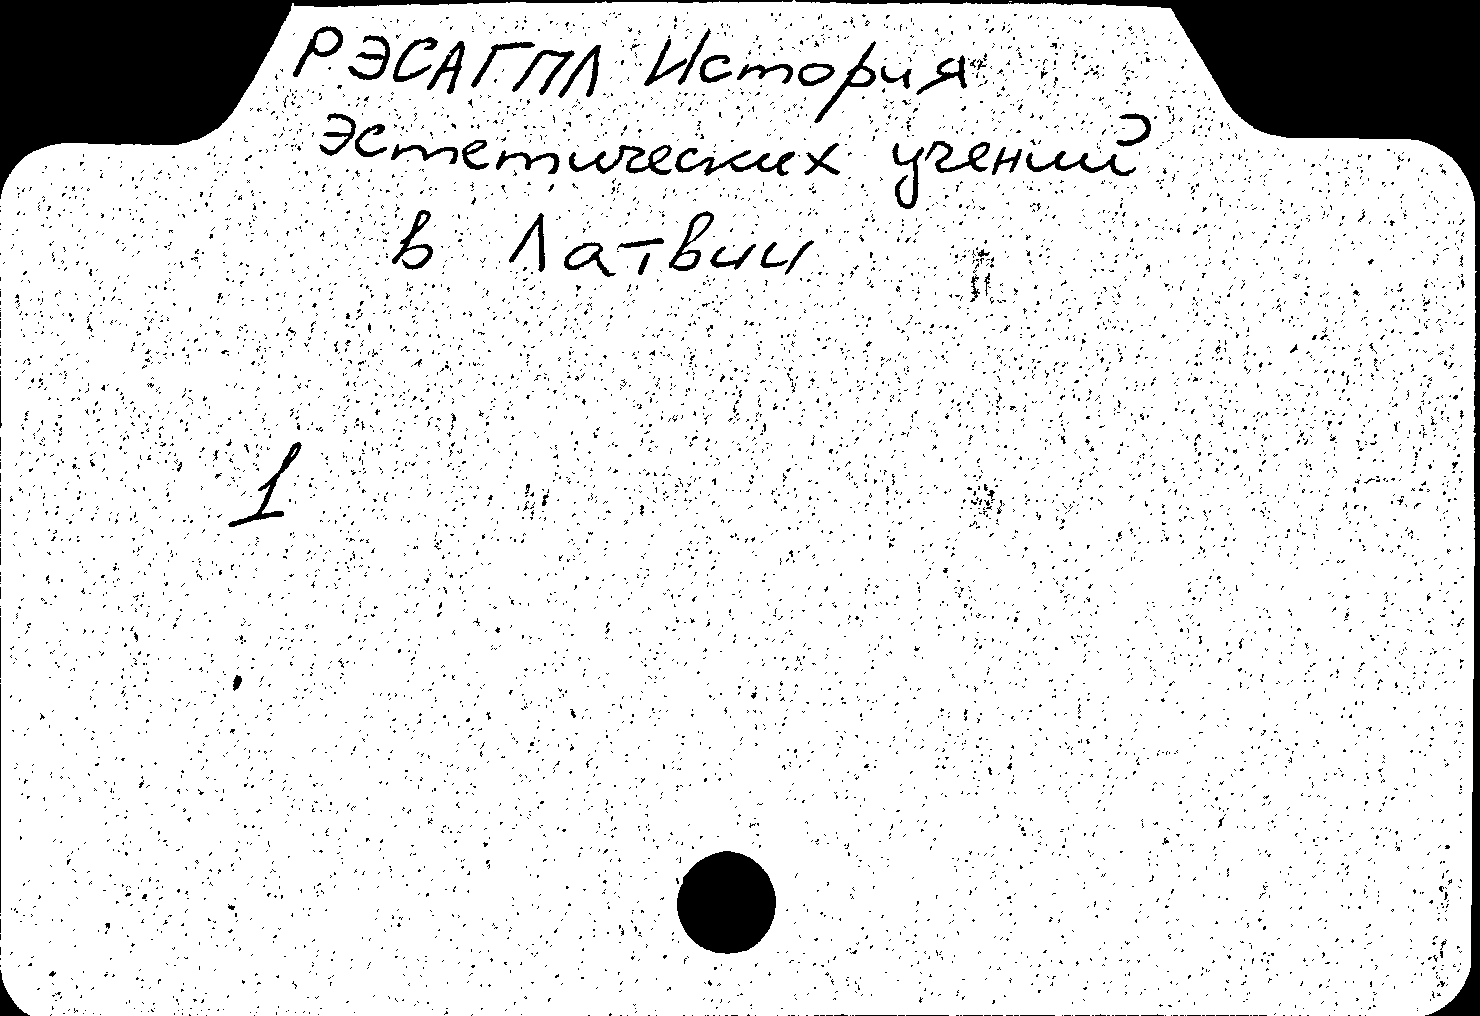 РЭСАГПЛ История
эстетических учений
в Латвии
1